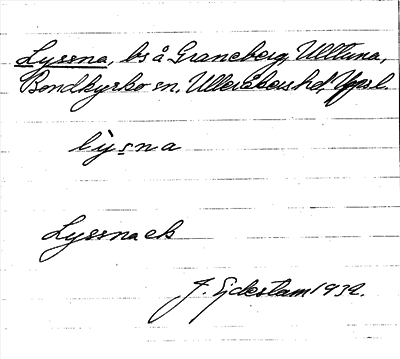 Lyssna, bs å Graneberg, Ulltuna,
Bondkyrko sn, Ulleråkers hd, Uppsl.
lỳsna
Lyssnaek
J. Ejdestam 1932.